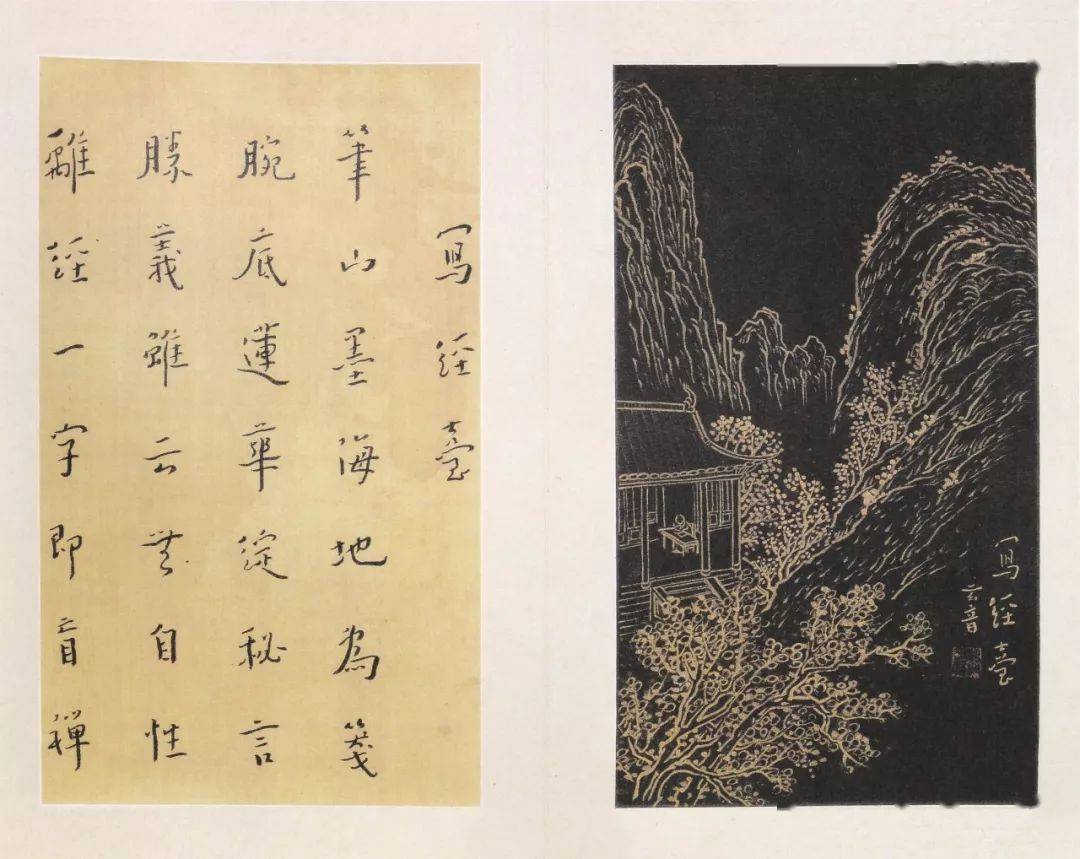 寫經臺
云音
寫經臺
筆山墨海地為箋
腕底蓮華綻秘言
勝義雖云無自性
離經一字即盲禪